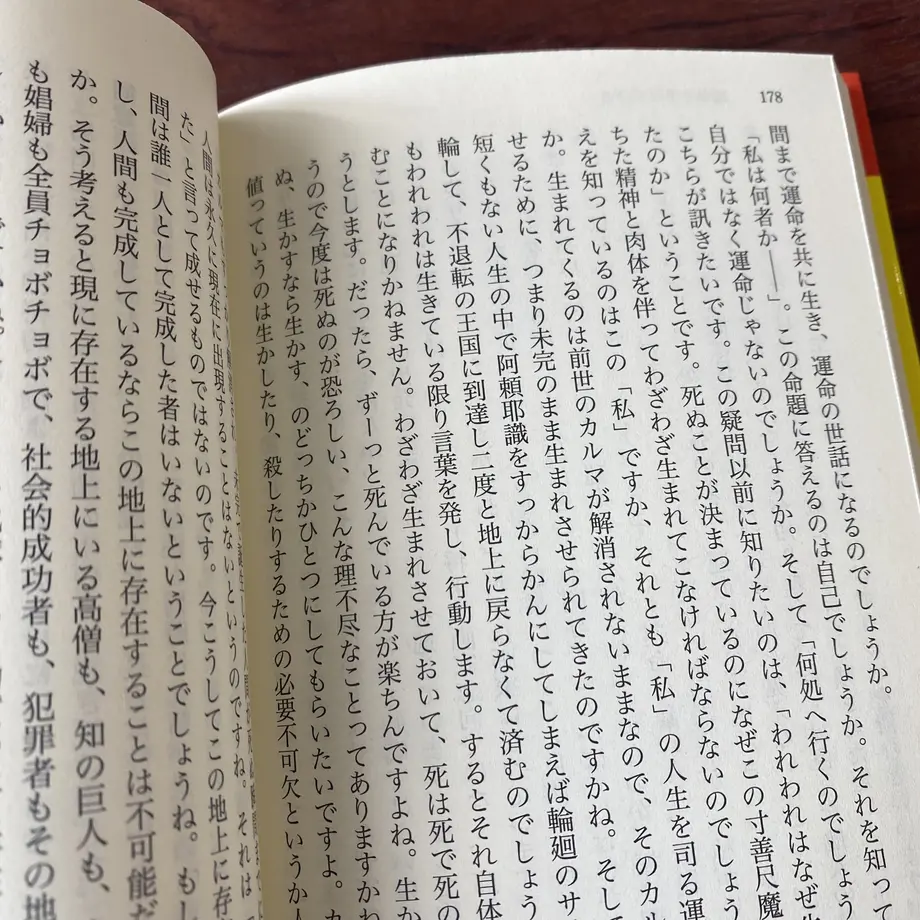 178
間まで運命を共に生き、運命の世話になるのでしょうか。
「私は何者か――」。この命題に答えるのは自己でしょうか。それを知って
自分ではなく運命じゃないのでしょうか。そして「何処へ行くのでしょう
こちらが訊きたいです。この疑問以前に知りたいのは、「われわれはなぜ
たのか」ということです。死ぬことが決まっているのになぜこの寸善尺魔
ちた精神と肉体を伴ってわざわざ生まれてこなければならないのでしょう
えを知っているのはこの「私」ですか、それとも「私」の人生を司る運
か。生まれてくるのは前世のカルマが解消されないままなので、そのカル
せるために、つまり未完のまま生まれさせられてきたのですかね。そし
短くもない人生の中で阿頼耶識をすっからかんにしてしまえば輪廻のサ
輪して、不退転の王国に到達し二度と地上に戻らなくて済むのでしょう
もわれわれは生きている限り言葉を発し、行動します。するとそれ自体
むことになりかねません。わざわざ生まれさせておいて、死は死で死の
うとします。だったら、ずーっと死んでいる方が楽ちんですよね。生か
うので今度は死ぬのが恐ろしい、こんな理不尽なことってありますか
ぬ、生かすなら生かす、のどっちかひとつにしてもらいたいですよ。
値っていうのは生かしたり、殺したりするための必要不可欠というか
人間は永久に現在に出現することはないというのですね。それは
た」と言って成せるものではないのです。今こうしてこの地上に存
間は誰一人として完成した者はいないということでしょうね。もし
し、人間も完成しているならこの地上に存在することは不可能だ
か。そう考えると現に存在する地上にいる高僧も、知の巨人も、
も娼婦も全員チョボチョボで、社会的成功者も、犯罪者もその地